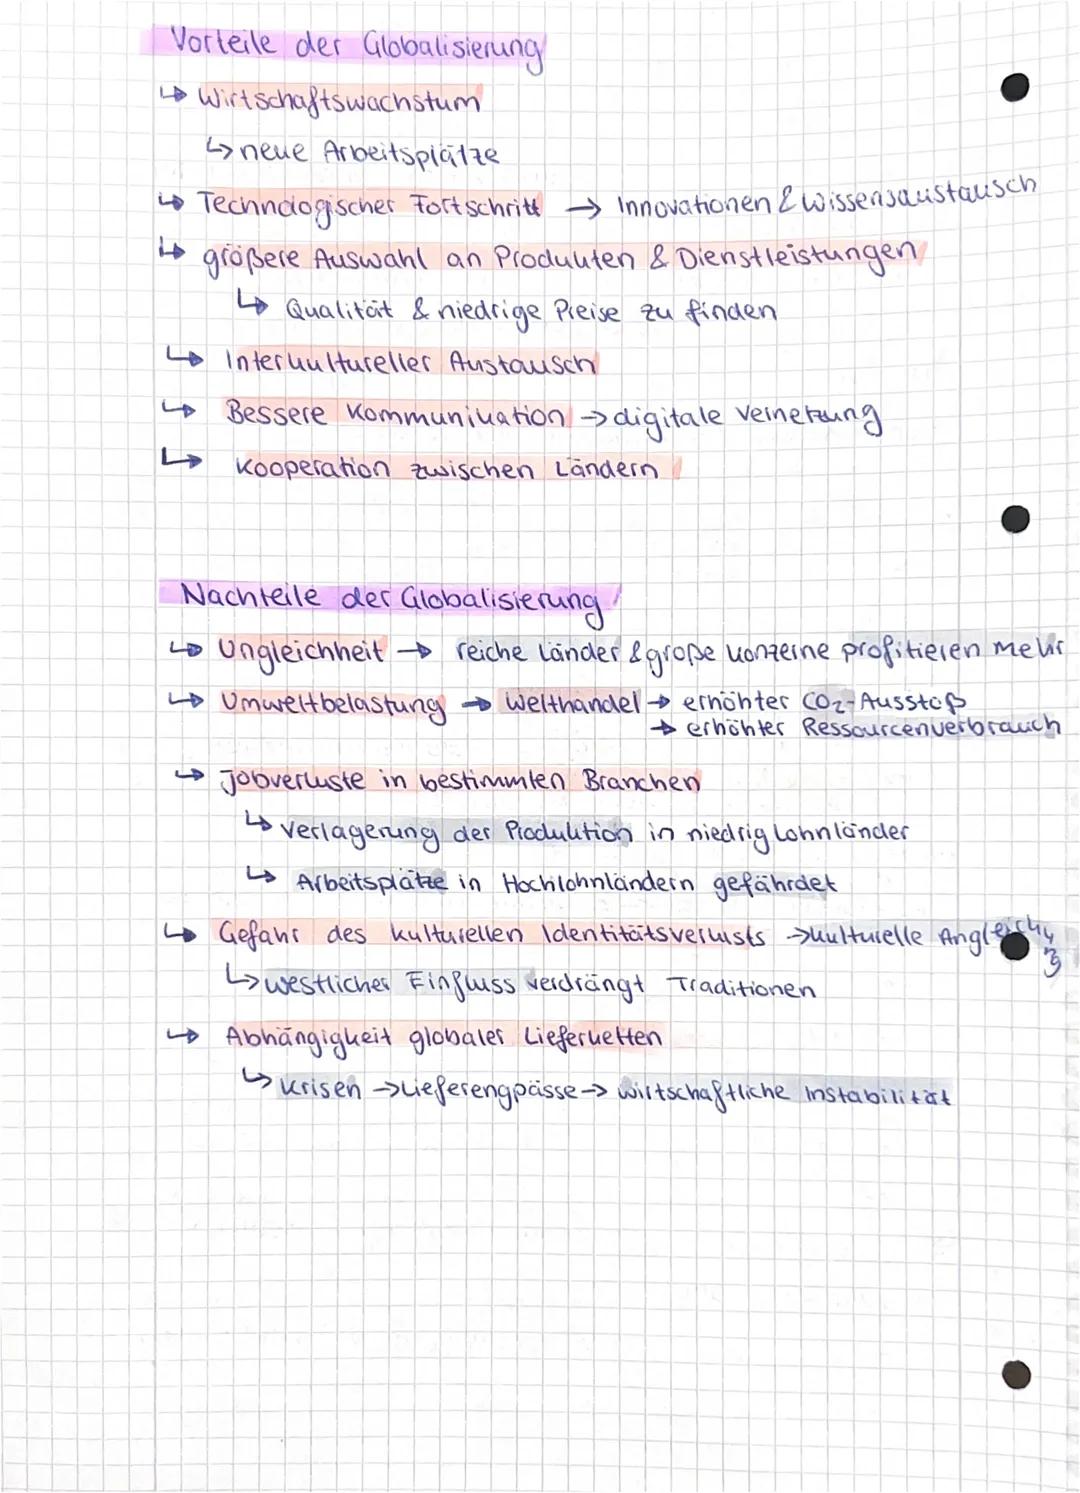 Vorteile der Globalisierung
↳ Wirtschaftswachstum
↳ neue Arbeitsplätze
↳ Technologischer Fortschritt → Innovationen & Wissensaustausch
↳ größere Auswahl an Produkten & Dienstleistungen
↳ Qualität & niedrige Preise zu finden
↳ Interkultureller Austausch
↳ Bessere Kommunikation → digitale Vernetzung
↳ Kooperation zwischen Ländern
Nachteile der Globalisierung
↳ Ungleichheit → reiche Länder & große Konzerne profitieren mehr
↳ Umweltbelastung → Welthandel → erhöhter CO₂-Ausstoß
→ erhöhter Ressourcenverbrauch
↳ Jobverluste in bestimmten Branchen
↳ Verlagerung der Produktion in niedrig Lohnländer
↳ Arbeitsplätze in Hochlohnländern gefährdet
↳ Gefahr des kulturellen Identitätsverlusts → kulturelle Angleichung
↳ westlicher Einfluss verdrängt Traditionen
↳ Abhängigkeit globaler Lieferketten
↳ Krisen → Lieferengpässe → wirtschaftliche Instabilität